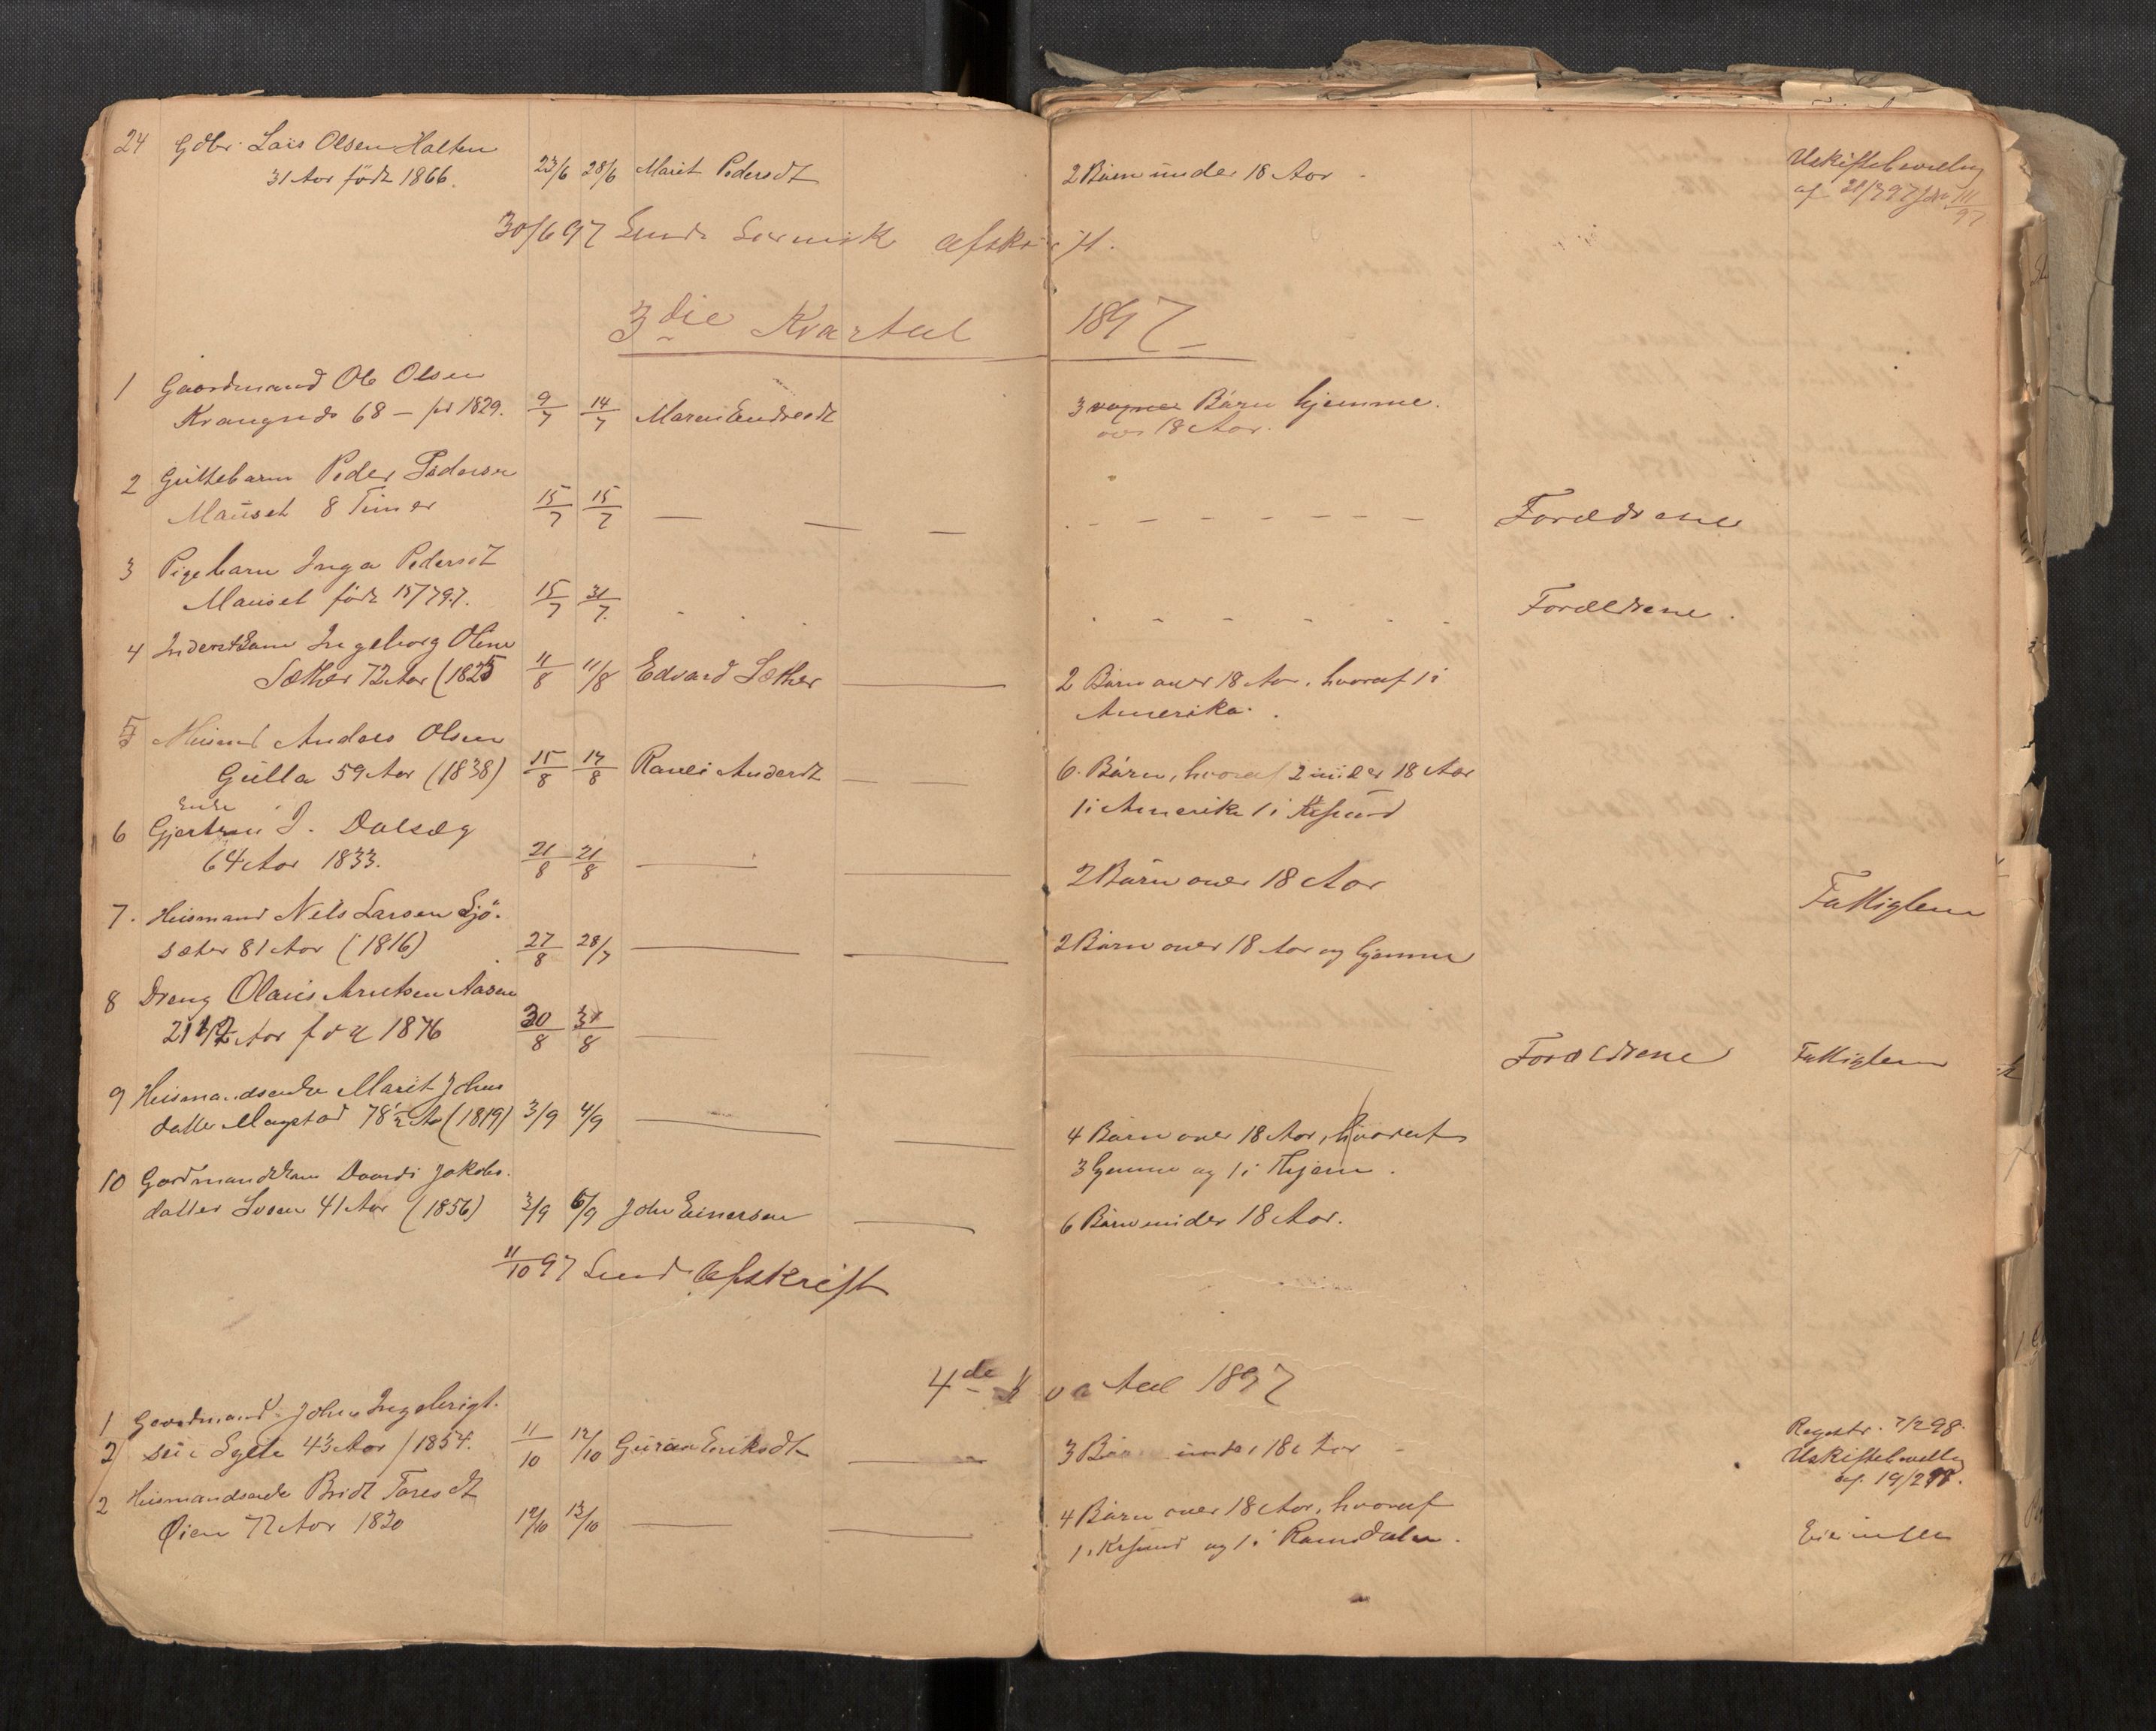 24 Gdbr. Lars Olsen Halten
31 Aar født 1866. 23/6 28/6 Marit Pedersdt 2 Børn under 18 Aar. Uskiftebevilling
af
30/6 97 Sendt Afskrift.
3die Kvartal 1897
1 Gaardmand Ole Olsen
68 - fød 1829. 9/7 14/7 Maren Endresdt 3 Børn hjemme.
over 18 Aar.
2 Guttebarn Peder Pedersen
Mauset 8 Timer 15/7 15/7 — — — - - - - - - - Forældrene
3 Pigebarn Inga Pedersdt
Mauset født 15/7 97. 15/7 31/7. Forældrene.
4 Ingeborg Oline
Sæther 72 Aar (1825 11/8 11/8 Edvard Sæther — 2 Børn over 18 Aar, hvoraf 1 i
Amerika.
5 Husmd Anders Olsen
Gulla 59 Aar (1838) 15/8 17/8 Andersdt — 6 Børn, hvoraf 2 under 18 Aar
1 i Amerika 1 i Krsund
Enke
6 Gjertrud J. Dalsæg
64 Aar 1833. 21/8 21/8 — — 2 Børn over 18 Aar Fattiglem
7. Husmand Nels Larsen Sjø-
sæter 81 Aar (1816) 27/8 28/7 — — 2 Børn over 18 Aar og hjemme
8 Dreng Olaus Arntsen Aasen
21 1/2 Aar født 1876 30/8 31/8 — — Forældrene Fattiglem
9 Husmandsenke Marit Johns
datter Magstad 78 1/2 Aar (1819) 3/9 4/9 — — 4 Børn over 18 Aar, hvoraf
3 hjemme og 1 i Thjem.
10 Gaardmandskone Dordi Jakobs-
datter Svean 41 Aar (1856) 3/9 6/9 John Einersen — 6 Børn under 18 Aar.
11/10 97 Sendt Afskrift
4de Kvartal 1897
1 Gaardmand John Ingebrigt-
2) sen Sylte 43 Aar (1854. 11/10 12/10 Guran Eriksdt — 3 Børn under 18 Aar - Regstr. 7/2 98.
Uskiftebevilling
af. 19/2 98.
2 Husmandsenke Brit Toresdt
Øien 77 Aar 1820 12/10 13/10 — — 4 Børn over 18 Aar, hvoraf
1 i Krsund og 1 i Romsdalen. Eier intet